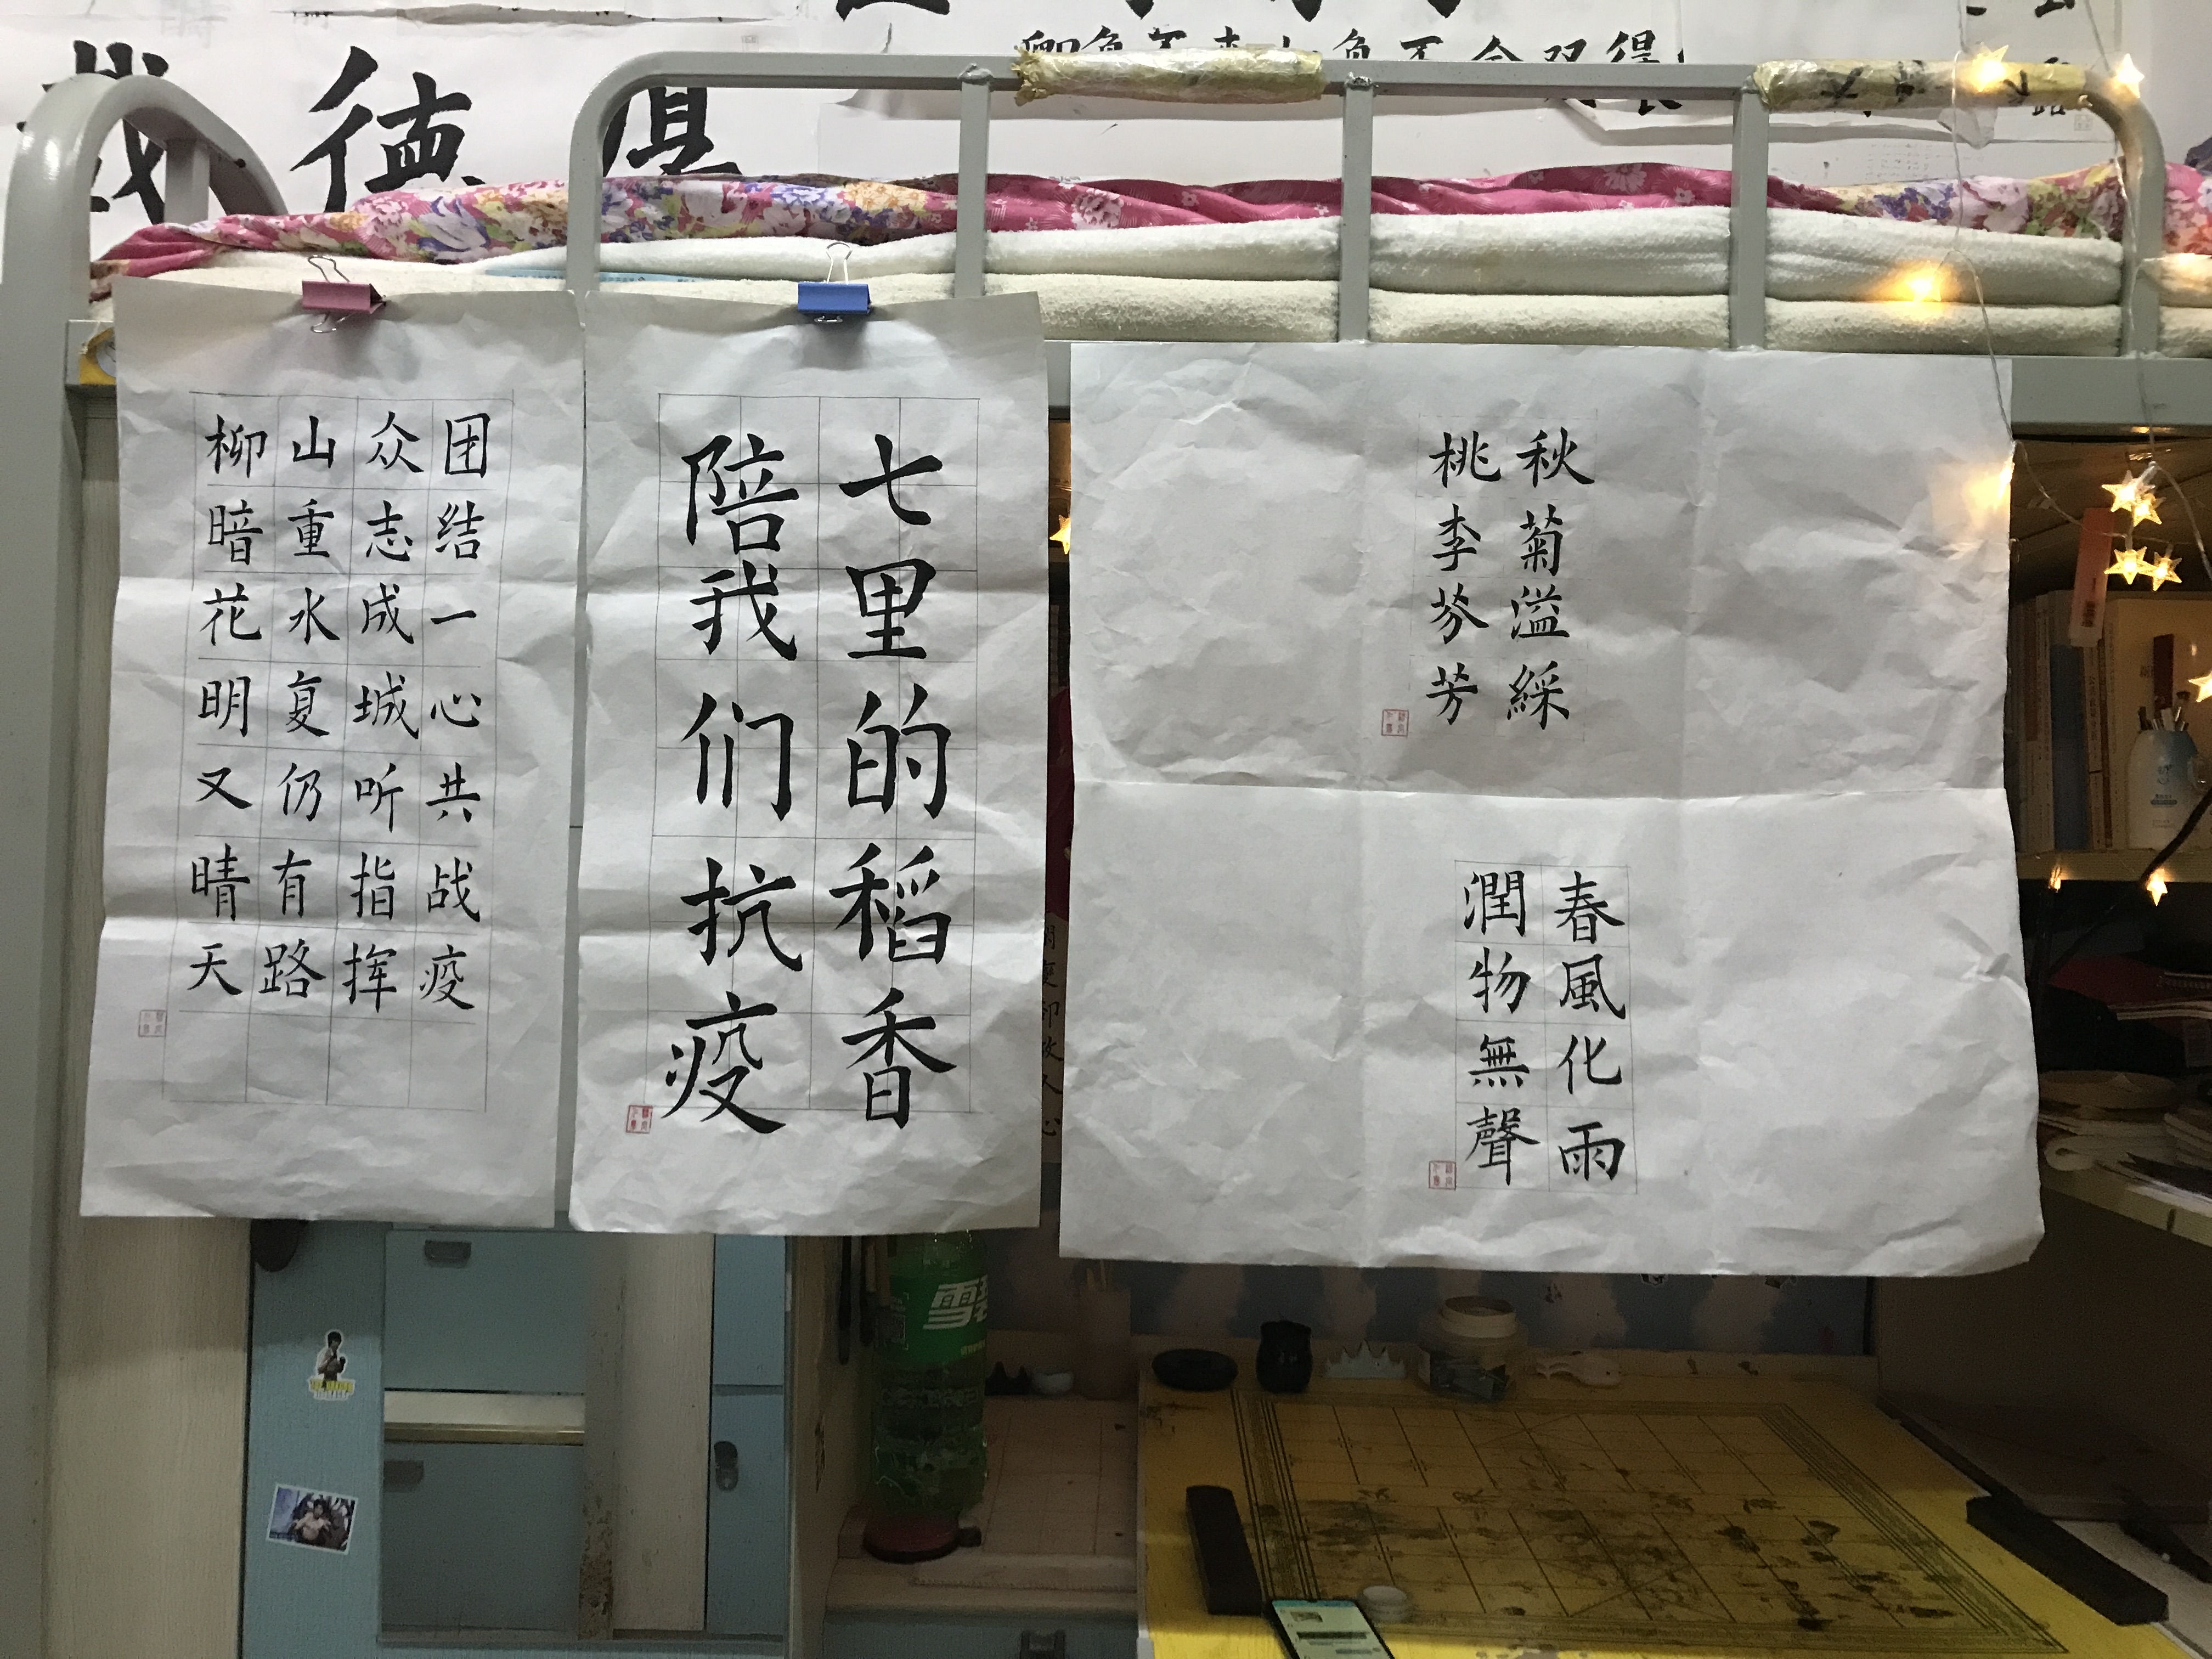 德
团结一心共战疫
众志成城听指挥
山重水复仍有路
柳暗花明又晴天
七里的稻香
陪我们抗疫
秋菊溢綵
桃李芬芳
春風化雨
潤物無聲